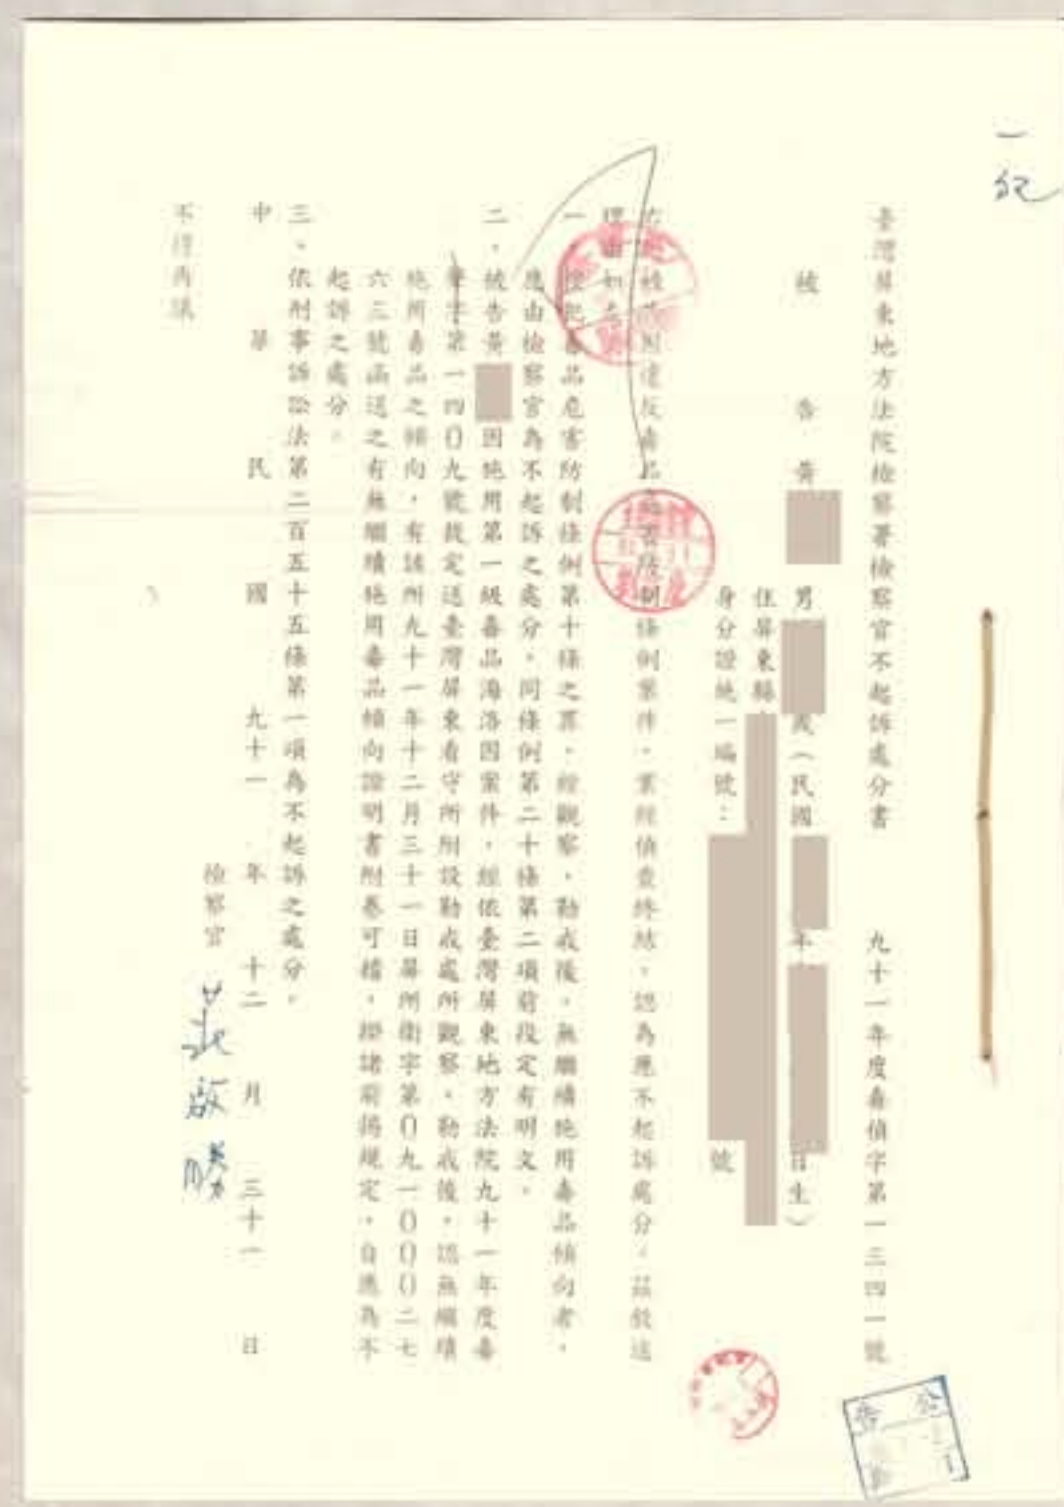 一紀
臺灣屏東地方法院檢察署檢察官不起訴處分書　九十一年度毒偵字第一三四一號
被告　黃
男　歲（民國　年　日生）
住屏東縣
身分證統一編號：　號
右列被告因違反毒品危害防制條例案件，業經偵查終結，認為應不起訴處分，茲敘述
理由如左：
一、按犯毒品危害防制條例第十條之罪，經觀察、勒戒後，無繼續施用毒品傾向者，
應由檢察官為不起訴之處分，同條例第二十條第二項前段定有明文。
二、被告黃　因施用第一級毒品海洛因案件，經依臺灣屏東地方法院九十一年度毒
聲字第一四〇九號裁定送臺灣屏東看守所附設勒戒處所觀察、勒戒後，認無繼續
施用毒品之傾向，有該所九十一年十二月三十一日屏所衛字第〇九一〇〇〇二七
六三號函送之有無繼續施用毒品傾向證明書附卷可稽，揆諸前揭規定，自應為不
起訴之處分。
三、依刑事訴訟法第二百五十五條第一項為不起訴之處分。
中華民國九十一年十二月三十一日
檢察官　莊啟勝
不得再議
公告